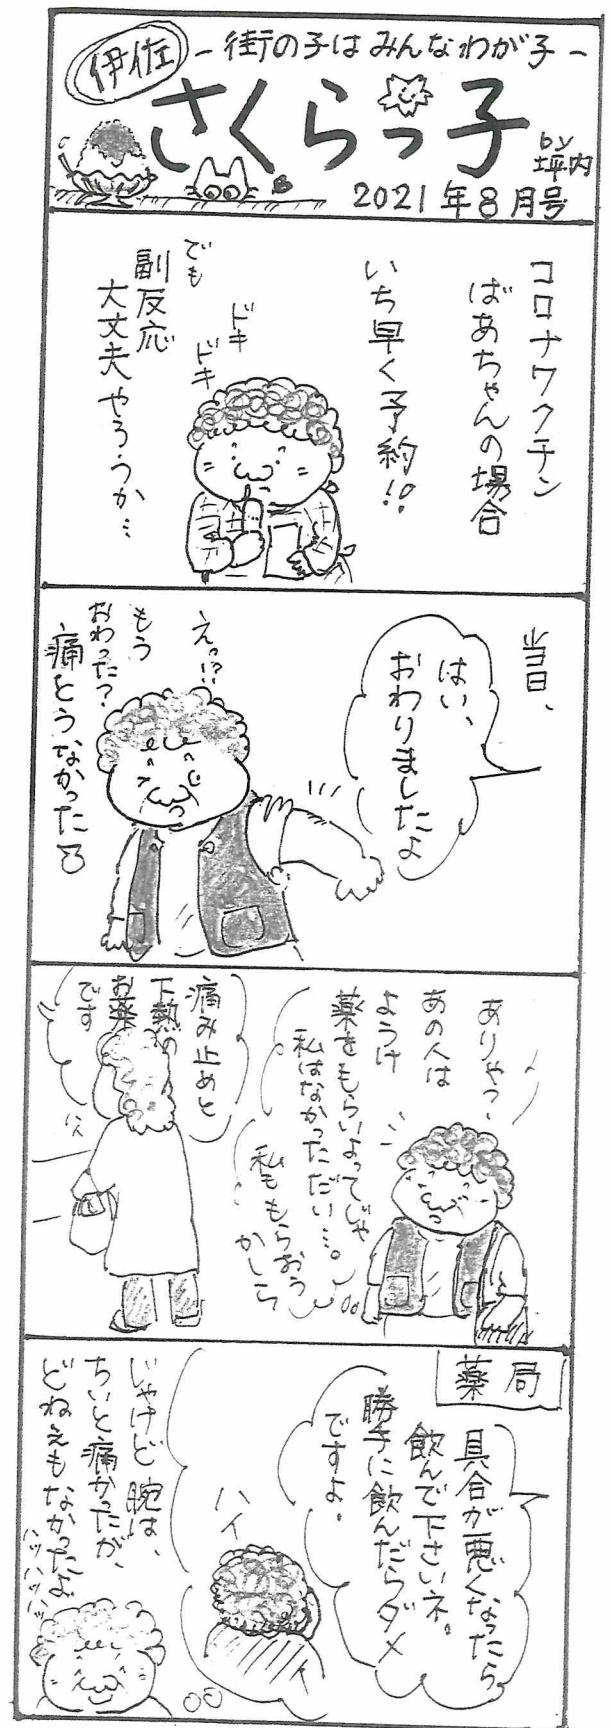 伊佐
-街の子はみんなわが子-
さくらっ子
by
坪内
2021年8月号
コロナワクチン
ばあちゃんの場合
いち早く予約!!
ドキ
ドキ
でも
副反応
大丈夫やろうか…
当日、
はい、
おわりましたよ
えっ!?
もう
おわった?
痛とうなかった
ありゃっ、
あの人は
ようけ
薬をもらいよってじゃ
私はなかっただい…。
私ももらおう
かしら
痛み止めと
下熱の
お薬
です
薬局
具合が悪くなったら
飲んで下さいネ。
勝手に飲んだらダメ
ですよ。
ハイ
じゃけど腕は、
ちいと痛かったが、
どねえもなかったよ
ハッハッハッ